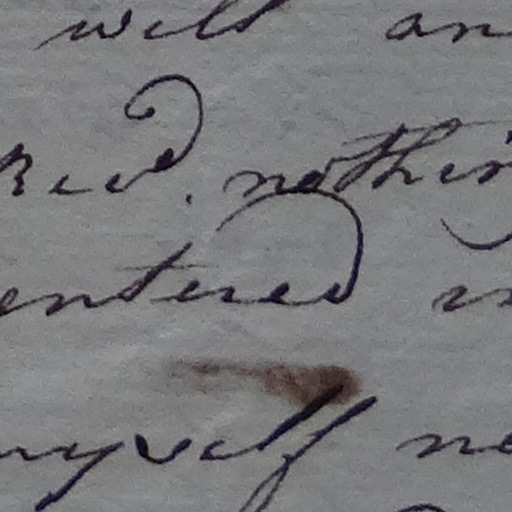 well an
Bed. nothin
entered in
myself no